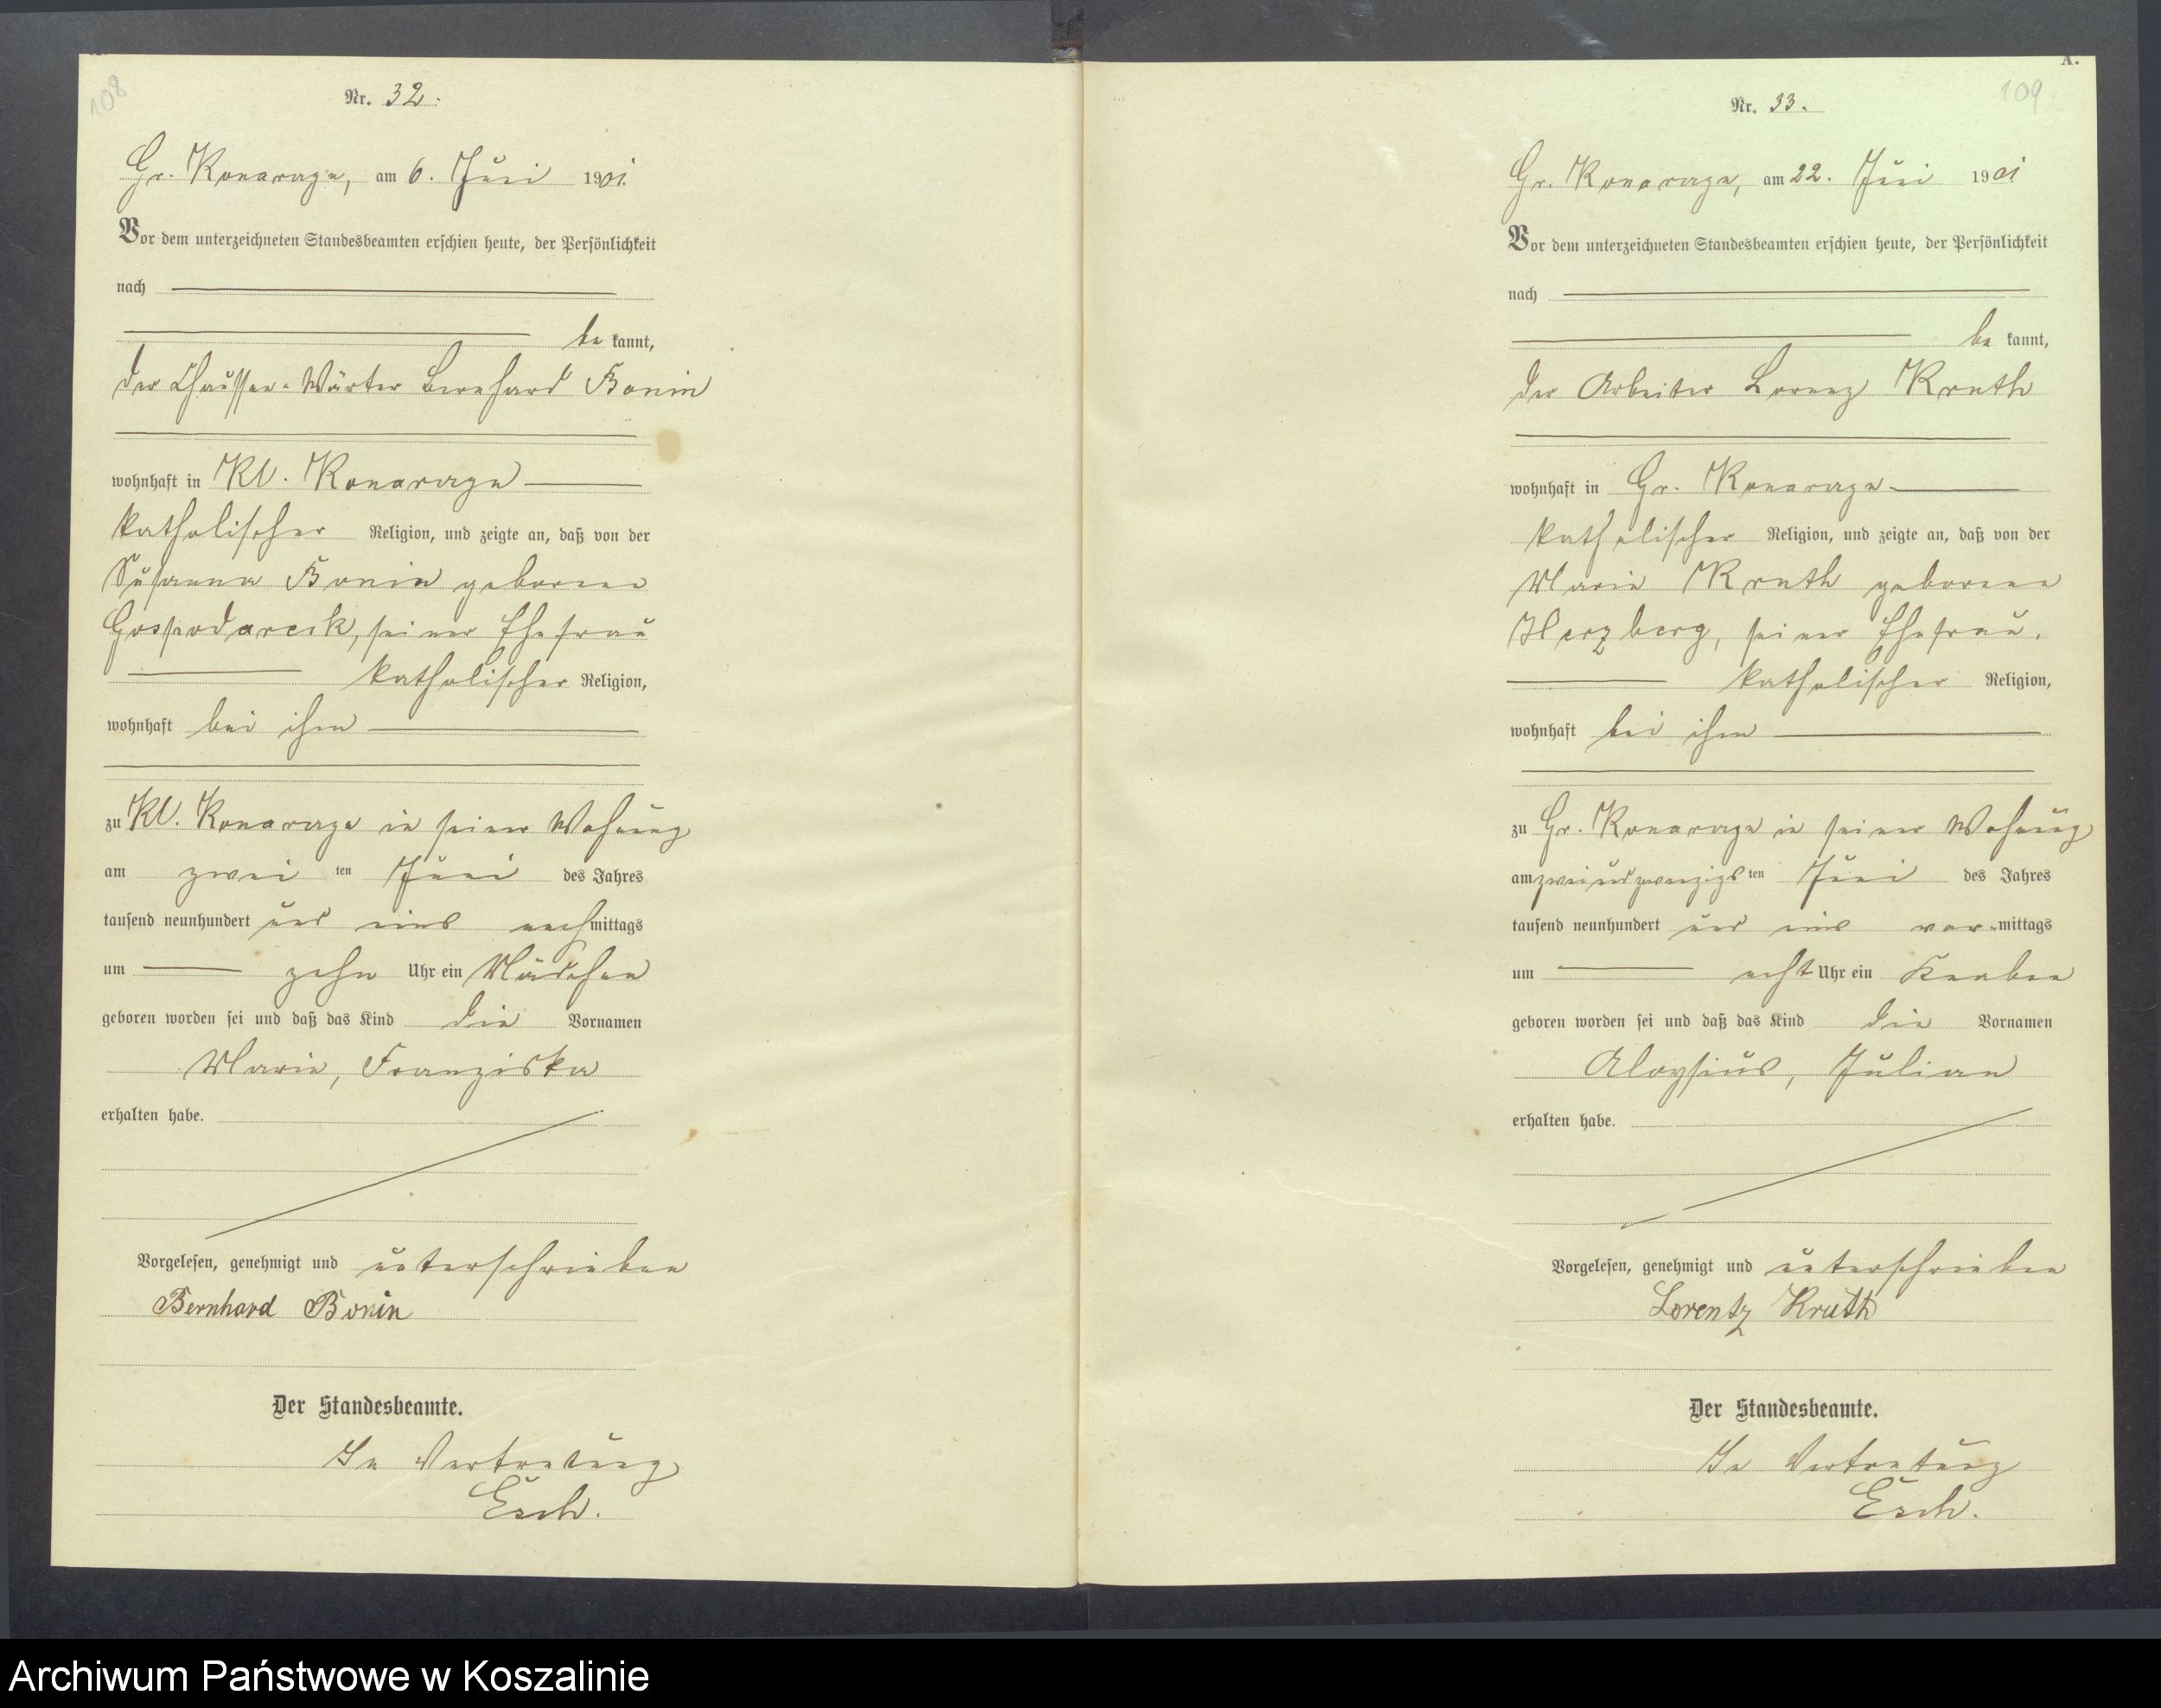 108
Nr. 32.
Gr. Konarczyn, am 6. Juni 1901.
Vor dem unterzeichneten Standesbeamten erschien heute, der Persönlichkeit
nach
be kannt,
der Chaussee-Wärter Bernhard Bonin
wohnhaft in Kl. Konarczyn
katholischer Religion, und zeigte an, daß von der
Susanna Bonin geborene
Gospodarcik, seiner Ehefrau
katholischer Religion,
wohnhaft bei ihm
zu Kl. Konarczyn in seiner Wohnung
am zwei ten Juni des Jahres
tausend neunhundert und eins nachmittags
um zehn Uhr ein Mädchen
geboren worden sei und daß das Kind die Vornamen
Marie, Franziska
erhalten habe.
Vorgelesen, genehmigt und unterschrieben
Bernhard Bonin
Der Standesbeamte.
In Vertretung
Esch.
A.
109
Nr. 33.
Gr. Konarczyn, am 22. Juni 1901
Vor dem unterzeichneten Standesbeamten erschien heute, der Persönlichkeit
nach
be kannt,
der Arbeiter Lorenz Kruth
wohnhaft in Gr. Konarczyn
katholischer Religion, und zeigte an, daß von der
Marie Kruth geborene
Herzberg, seiner Ehefrau.
katholischer Religion,
wohnhaft bei ihm
zu Gr. Konarczyn in seiner Wohnung
am zweiundzwanzigsten Juni des Jahres
tausend neunhundert und eins vor-mittags
um acht Uhr ein Knabe
geboren worden sei und daß das Kind die Vornamen
Aloysius, Julian
erhalten habe.
Vorgelesen, genehmigt und unterschrieben
Lorentz Kruth
Der Standesbeamte.
In Vertretung
Esch.
Archiwum Państwowe w Koszalinie